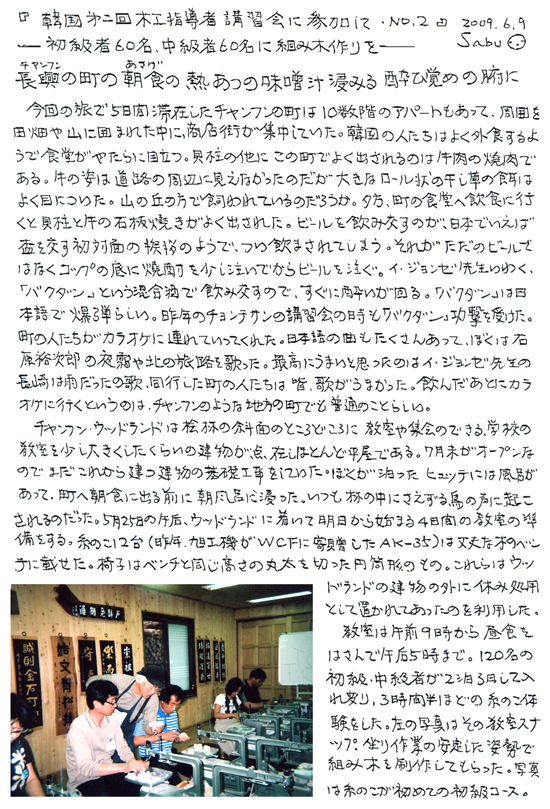 『韓国第二回木工指導者講習会に参加して・NO.2』 2009.6.9
―初級者60名、中級者60名に組み木作りを― Sabu
チャンフン あさげ
長興の町の朝食の熱あつの味噌汁浸みる酔び覚めの腑に
今回の旅で5日間滞在したチャンフンの町は10数階のアパートもあって、周囲を
田畑や山に囲まれた中に、商店街が集中していた。韓国の人たちはよく外食するよ
うで食堂がやたらに目立つ。貝柱の他にこの町でよく出されるのは牛肉の焼肉で
ある。牛の姿は道路の周辺に見えなかったのだが大きなロール状の干し草の餌は
よく目についた。山の丘の方で飼われているのだろうか。夕方、町の食堂へ飲食に行
くと貝柱と牛の石板焼きがよく出された。ビールを飲み交すのが、日本でいえば
盃を交す初対面の挨拶のようで、つい飲まされてしまう。それがただのビールで
はなくコップの底に焼酎を少し注いでからビールを注ぐ。イ・ジョンゼ先生いわく、
「バクダン」という混合酒で飲み交すので、すぐに酔いが回る。「バクダン」は日
本語で爆弾らしい。昨年のチョンテサンの講習会の日時も「バクダン」攻撃を受けた。
町の人たちがカラオケに連れていってくれた。日本語の曲もたくさんあって、ぼくは石
原裕次郎の夜霧や北の旅路を歌った。最高にうまいと思ったのはイ・ジョンゼ先生の
長崎は雨だったの歌、同行した町の人たちは皆、歌がうまかった。飲んだあとにカラ
オケに行くというのは、チャンフンのような地方の町でも普通のことらしい。
チャンフン・ウッドランドは桧林の斜面のところどころに教室や集会のできる、学校の
教室を少し大きくしたくらいの建物が点在しほとんど平屋である。7月末がオープンな
のでまだこれから建つ建物の基礎工事をしていた。ぼくが泊ったヒュッテには風呂が
あって、町へ朝食に出る前に朝風呂に浸った。いつも林の中にさえずる鳥の声に起こ
されるのだった。5月25日の午后、ウッドランドに着いて明日から始まる4日間の教室の準
備をする。糸のこ12台(昨年、旭工機がWCFに寄贈したAK-35)は丈夫な木のベン
チに載せた。椅子はベンチと同じ高さの丸太を切った円筒形のもの。これらはウッ
ドランドの建物の外に休み処用
として置かれてあったのを利用した。
教室は午前9時から昼食を
はさんで午后5時まで。120名の
初級、中級者が2泊3日して入
れ変り、3時間半ほどの糸のこ体
験をした。左の写真はその教室スナ
ップ。坐り作業の安定した姿勢で
組み木を制作してもらった。写真
は糸のこが初めての初級コース。